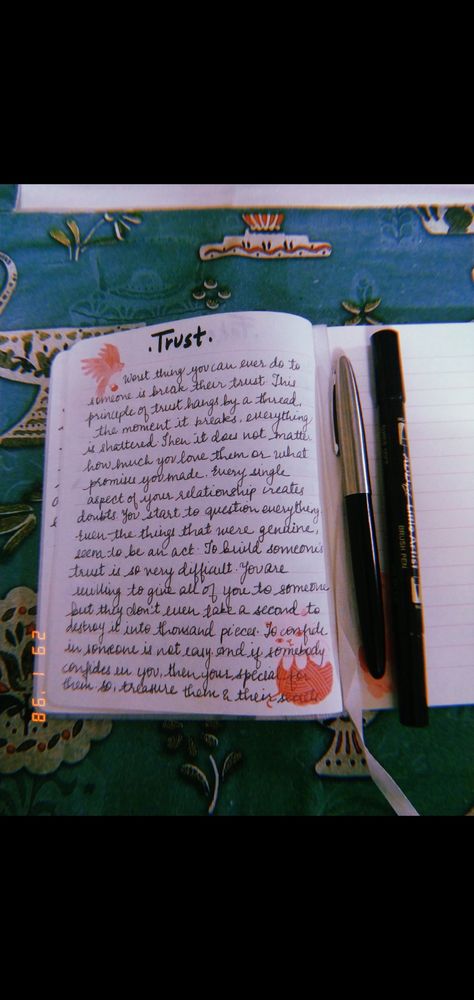 .Trust.
Worst thing you can ever do to
someone is break their trust. This
principle of trust hangs by a thread.
the moment it breaks, everything
is shattered. Then it does not matter
how much you love them or what
promises you made. Every single
aspect of your relationship creates
doubts. You start to question everything
Even the things that were genuine,
seem to be an act. To build someone's
trust is so very difficult. You are
willing to give all of you to someone
but they don't even take a second to
destroy it into thousand pieces. To confide
in someone is not easy. And if somebody
confides in you, then your special for
them so, treasure them & their secrets
Little Artist
BRUSH PEN
29 1 '98